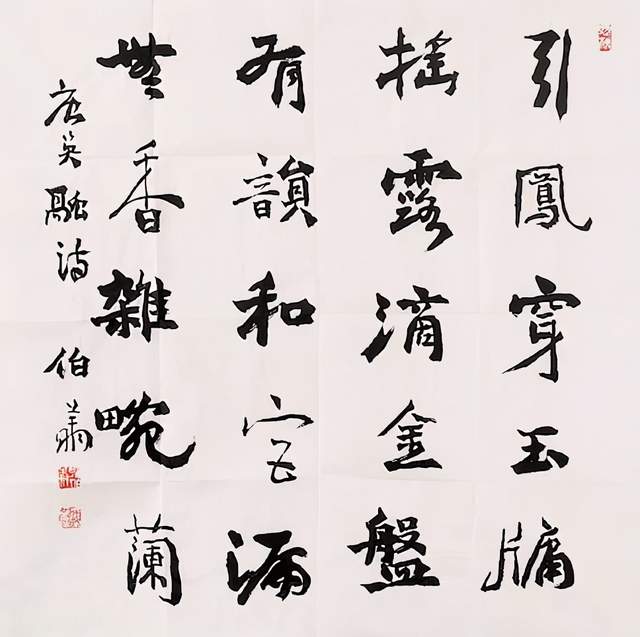 引鳳穿玉牖
搖露滴金盤
有韻和宮漏
無香雜畹蘭
唐吳融詩
伯蕭